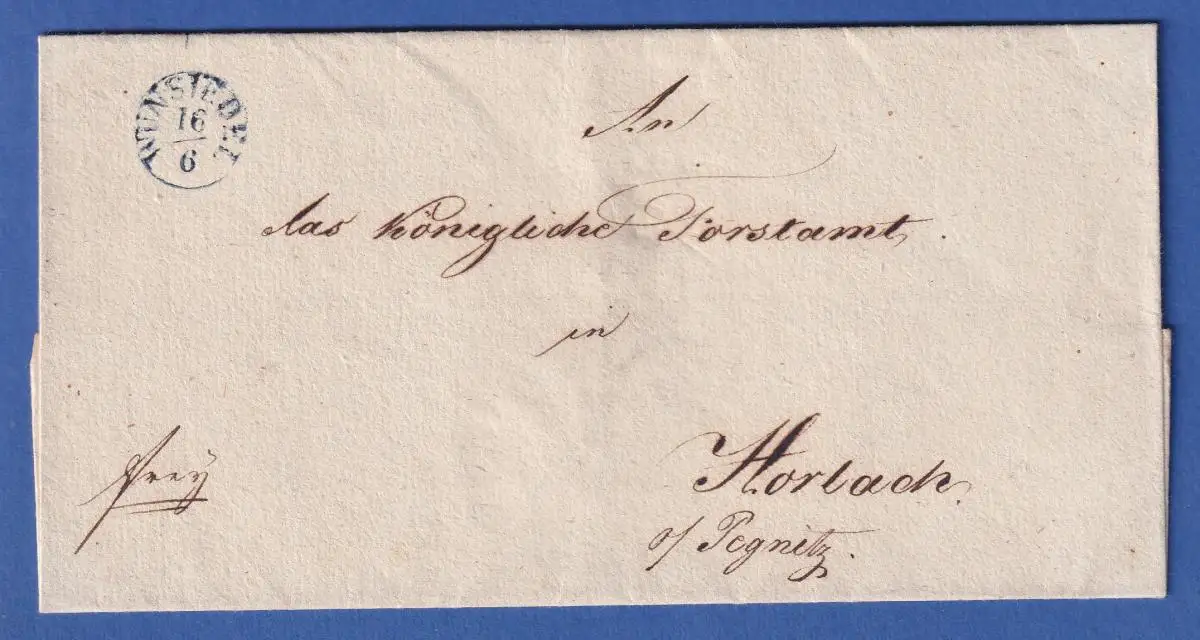 WUNSIEDEL
16
6
An
das Königliche Forstamt
in
Horlach
frey
o/ Pegnitz.